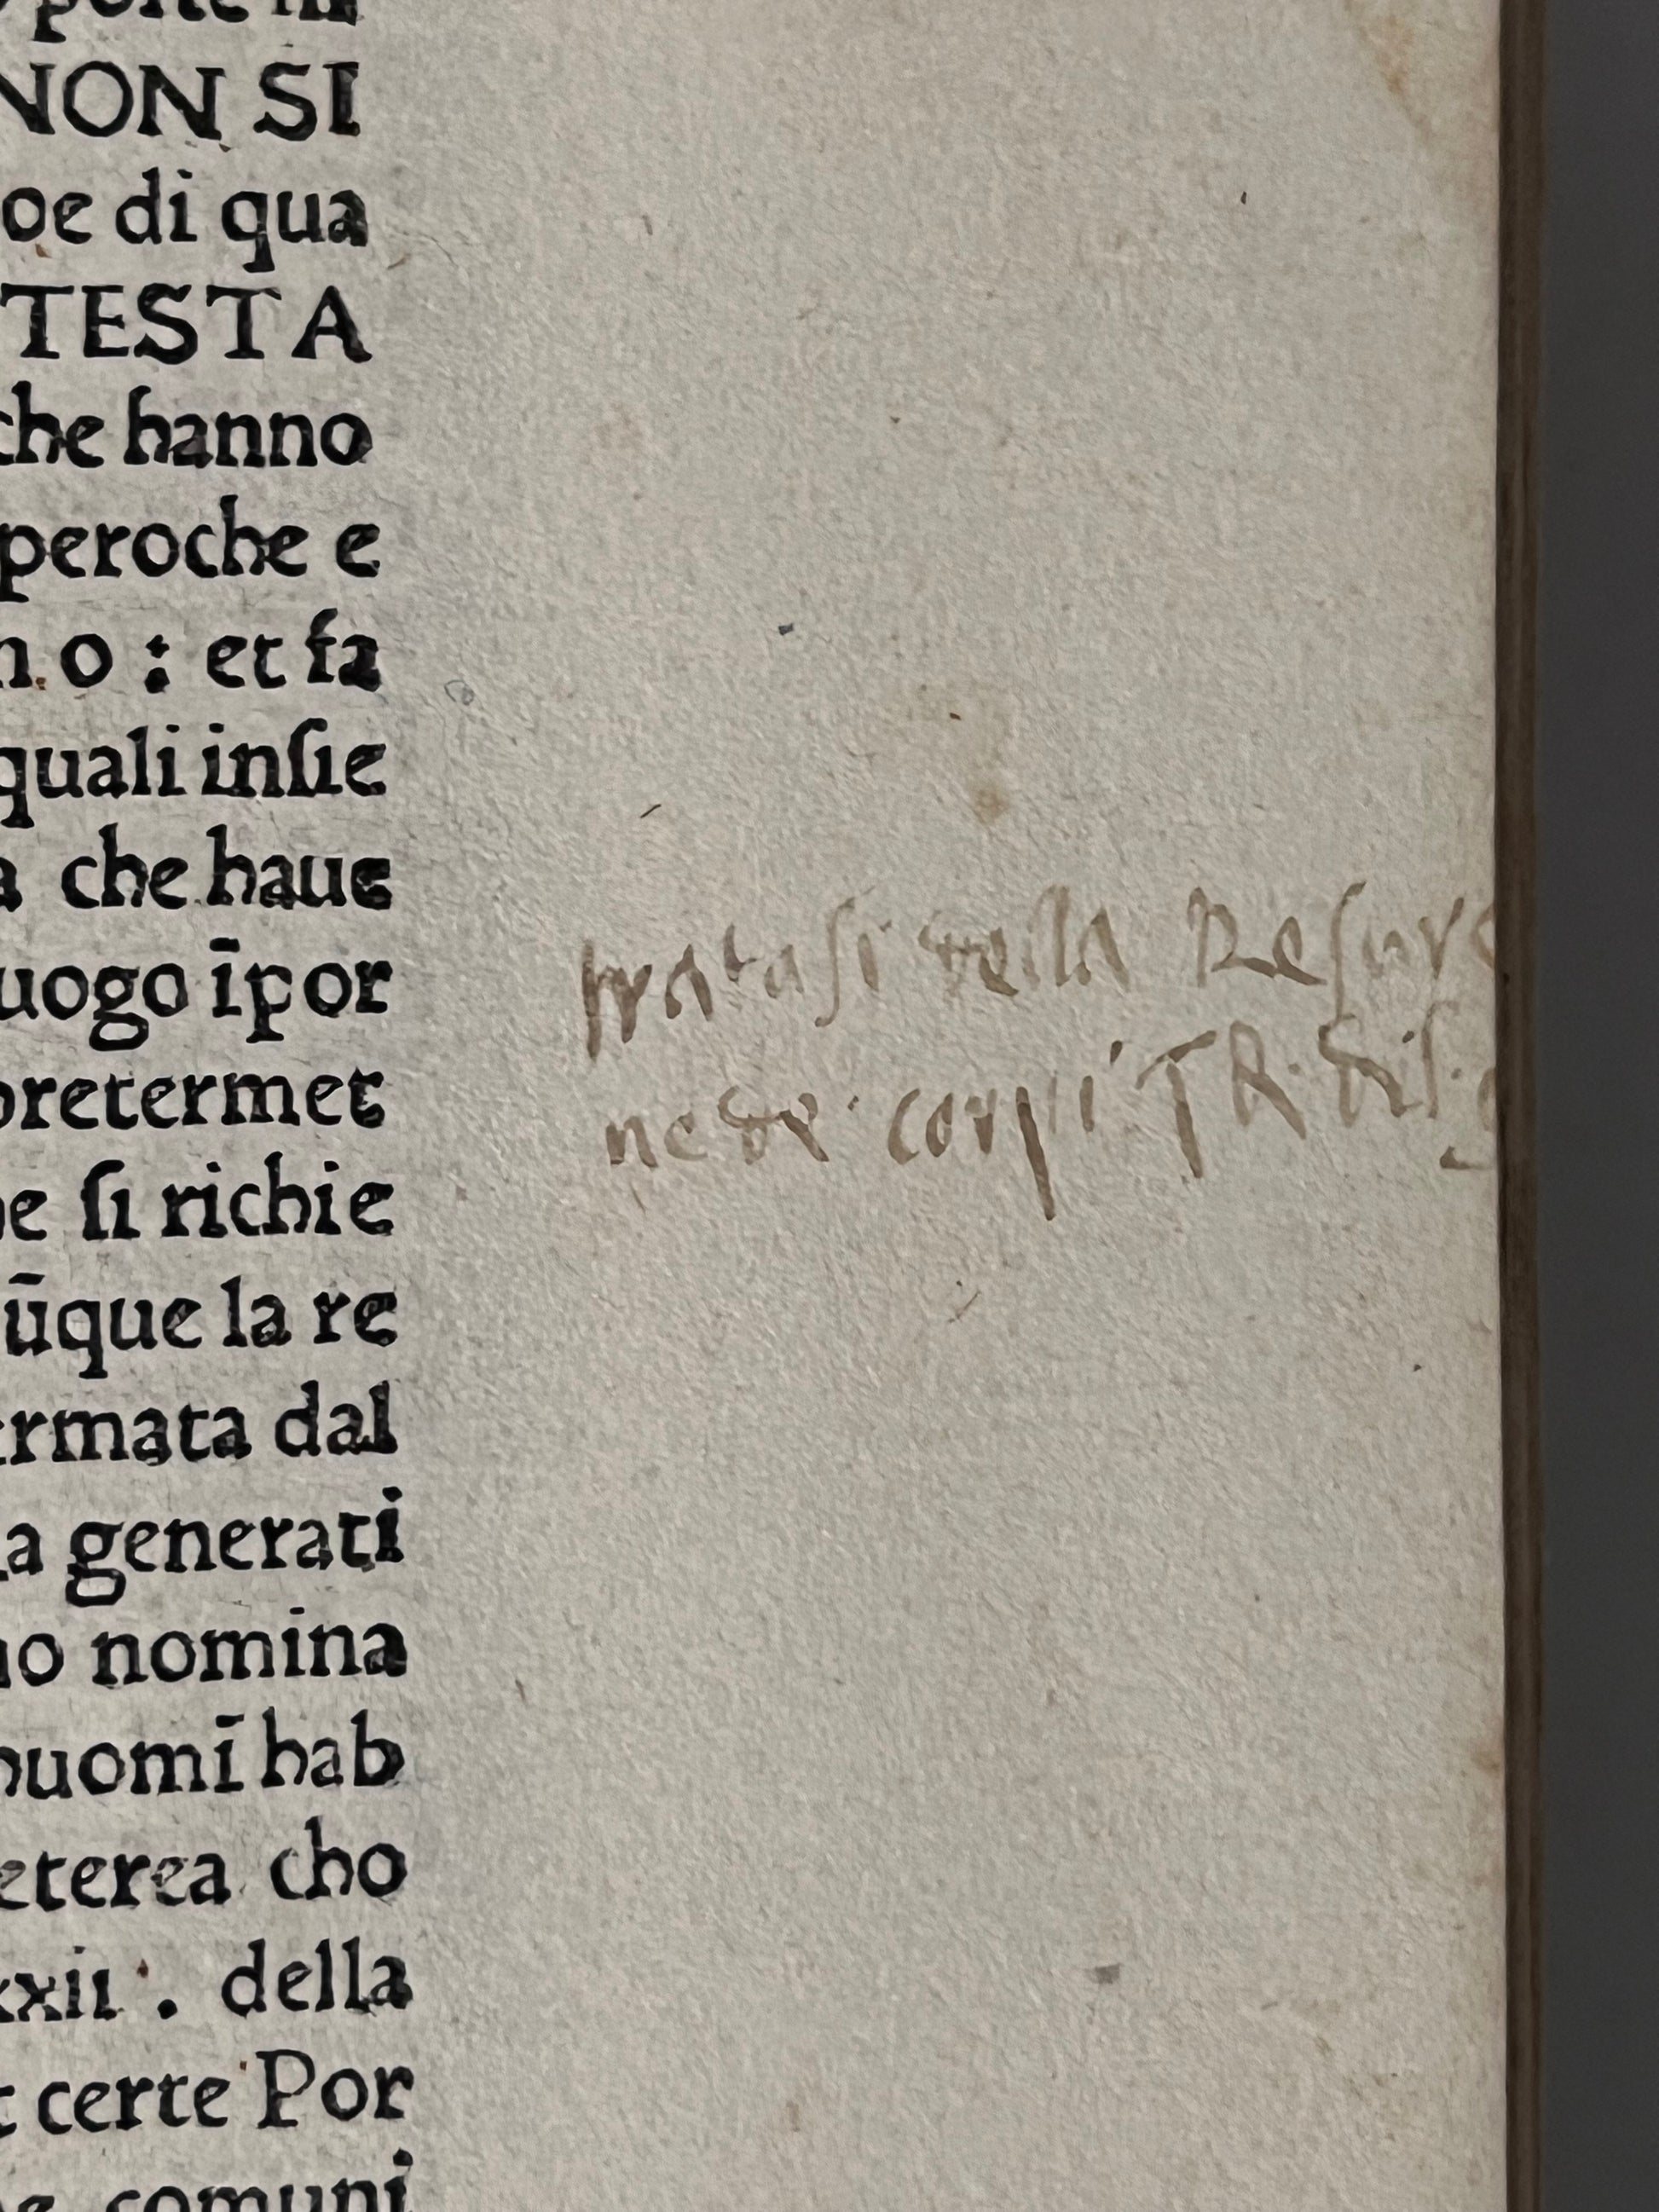 NON SI
oe di qua
TESTA
che hanno
peroche e
no : et fa
quali inſie
a che haue
uogo īpor
pretermet
he ſi richie
ūque la re
ermata dal
la generati
no nomina
huomī hab
eterea cho
xxii . della
t certe Por
comuni
tratasi della Resure
ne de corpi